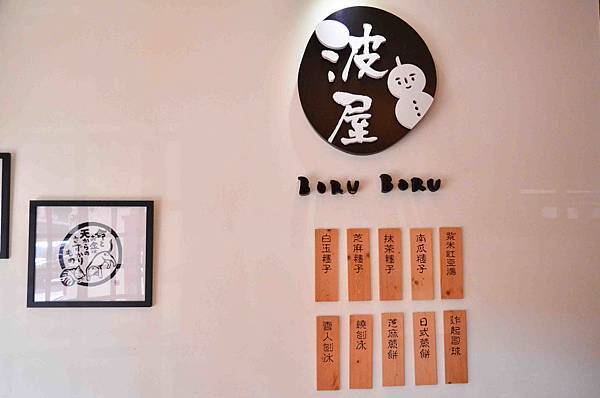 波屋
BORU BORU
紫米紅豆湯
南瓜糰子
抹茶糰子
芝麻糰子
白玉糰子
炸起司球
日式煎餅
芝麻煎餅
燒刨冰
雪人刨冰
天からの